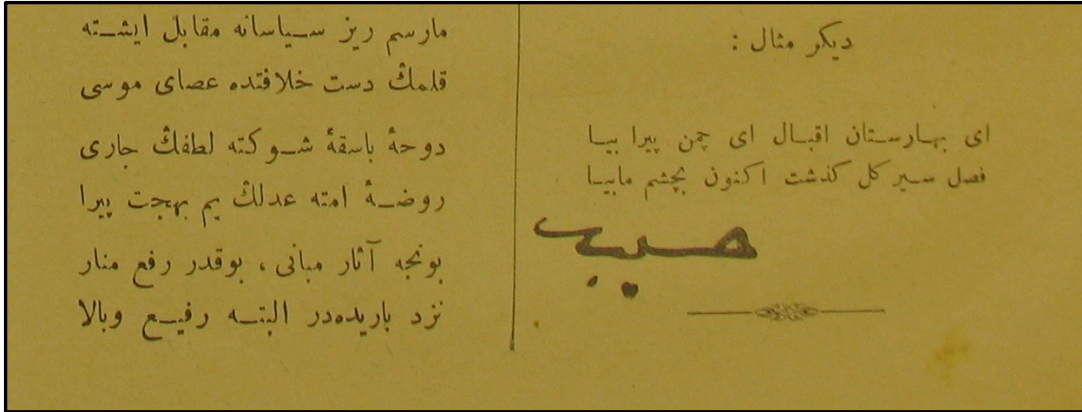 دیكر مثال :
ای بهارستان اقبال ای چمن پیرا بیا
فصل سیر كل كذشت اكنون بچشم مابیا
حبیب
مارسم ریز سیاسانه مقابل ایشته
قلمڭ دست خلافتده عصای موسی
دوحهٔ باسقهٔ شوكته لطفڭ جاری
روضهٔ امته عدلڭ یم بهجت پیرا
بونجه آثار مبانی ، بوقدر رفع منار
نزد باریده‌در البته رفیع وبالا